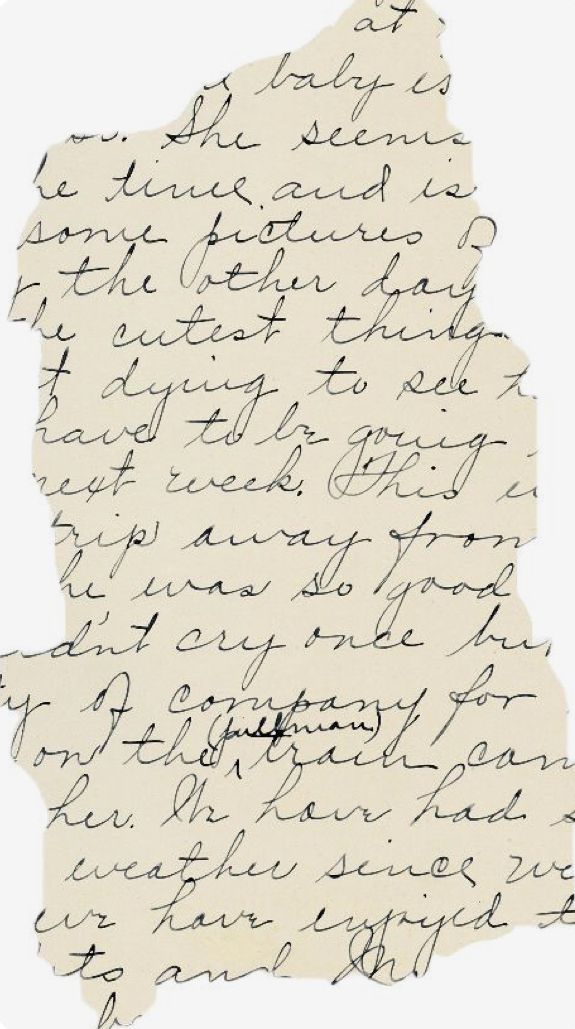 at
baby is
so. She seems
he time and is
some pictures o
the other day
he cutest thing.
t dying to see h
have to be going
next week. This w
trip away from
he was so good
dn't cry once bu
ty of company for
(pullman)
on the train cam
her. We have had s
weather since we
we have enjoyed t
ts and M
b